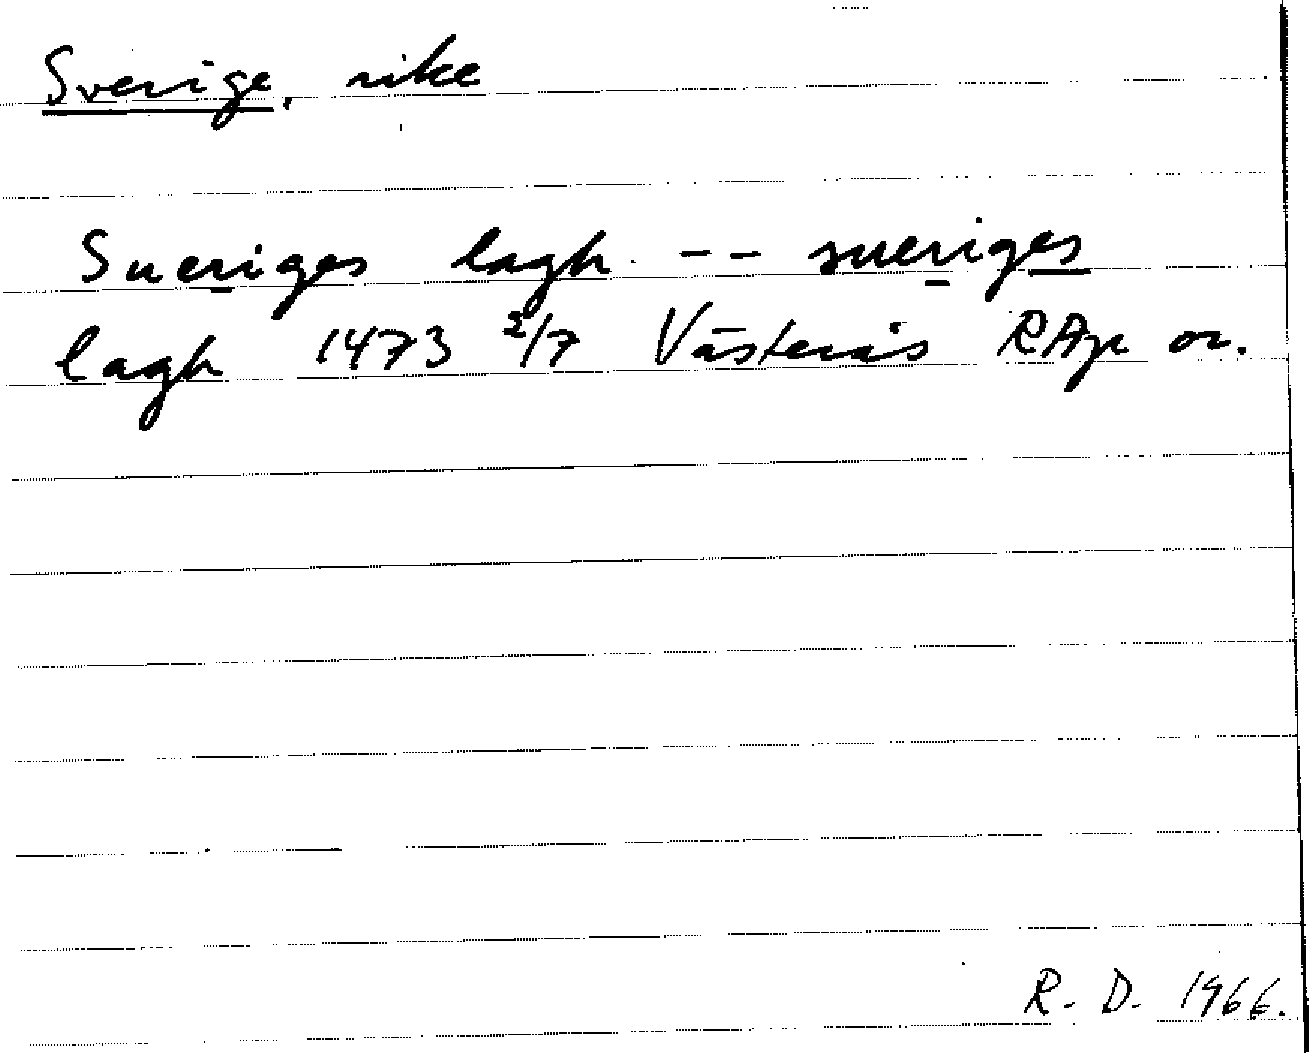 Sverige, rike
Sueriges lagh -- sueriges
lagh 1473 2/7 Västerås RAp or.
R. D. 1966.